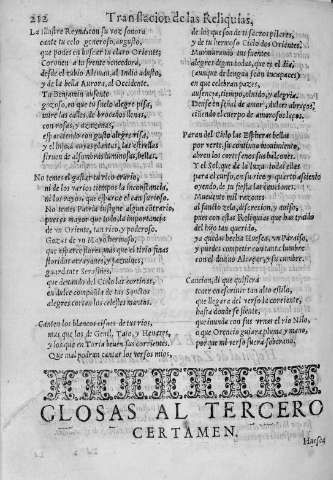 212 Translacion de las Reliquias.
La illustre Reyna, con su voz sonora
cante tu celo generoso, augusto,
que pones en buscar tu claro Oriente:
Coronen tu frente vencedora,
desde el rubio Aleman, al Indio adusto,
y de la bella Aurora, al Occidente.
Tu Benenden ausente
gozoso, en que tu suelo alegre pisse,
mire las calles, de brocados llenas,
con rosas, y azuzenas,
esparziendo con gusto alegre risa,
y el bien, varias plantas, las estrellas
sirvan de alfombras luminosas, bellas.
No temes el gastar tu rico erario,
ni de los varios tiempos la inconstancia,
ni los rayos que esparze el can furioso.
No temes Patria insigne algun contrario,
pues es mayor que todo la importancia
de un Oriente, tan rico, y poderoso.
Gozas de un Mayo hermoso,
que esparze flores, mas que el Iris suas
floridos arrayanes, y jazmines,
guardante Serafines,
que dexando del Cielo las cortinas,
en dulce compañia de tus Santos
alegres cortan los celestes mantos.
Canten los blancos cisnes de tus rios,
mas que los de Genil, Tajo, y Henares,
y los que en Turia beven sus corrientes.
Que mal podran cantar los versos mios,
de los que son de ti sacros pilares,
y de tu hermoso Cielo dos Orientes.
Murmurando sus fuentes
alegres todas digan, que es el dia,
(aunque de lengua sean incapaces)
en que celebran pazes,
ausencia, tiempo, olvido, y alegria.
Dense en señal de amor, dulces abraços,
ciñendo el cuerpo de amorosos lazos.
Paran del Cielo las Esferas bellas
por verte, su continuo movimiento,
abren los cortesanos sus balcones.
Y el Sol, que da la luz a todas ellas
para el curso, en su rico y quarto assiento
oyendo, de tu fiesta las canciones.
Mueveme mil razones
al sancto zelo, discrecion, y anisso,
pues con estas Reliquias que has traido
del hijo tan querido,
ya quedas hecha Huesca, un Parayso,
y puedes competir con tanta lumbre
con el divino Alcaçar, y su cumbre.
Cancion, di que quisiera
tener en escrivir tan alto estilo,
que llegara del verso la corriente,
hasta donde se siente,
que inunda con sus vernos el rio Nilo,
o que Orencio guiara pluma, y mano,
por que mi verso fuera soberano.
GLOSAS AL TERCERO
CERTAMEN.
Huesca